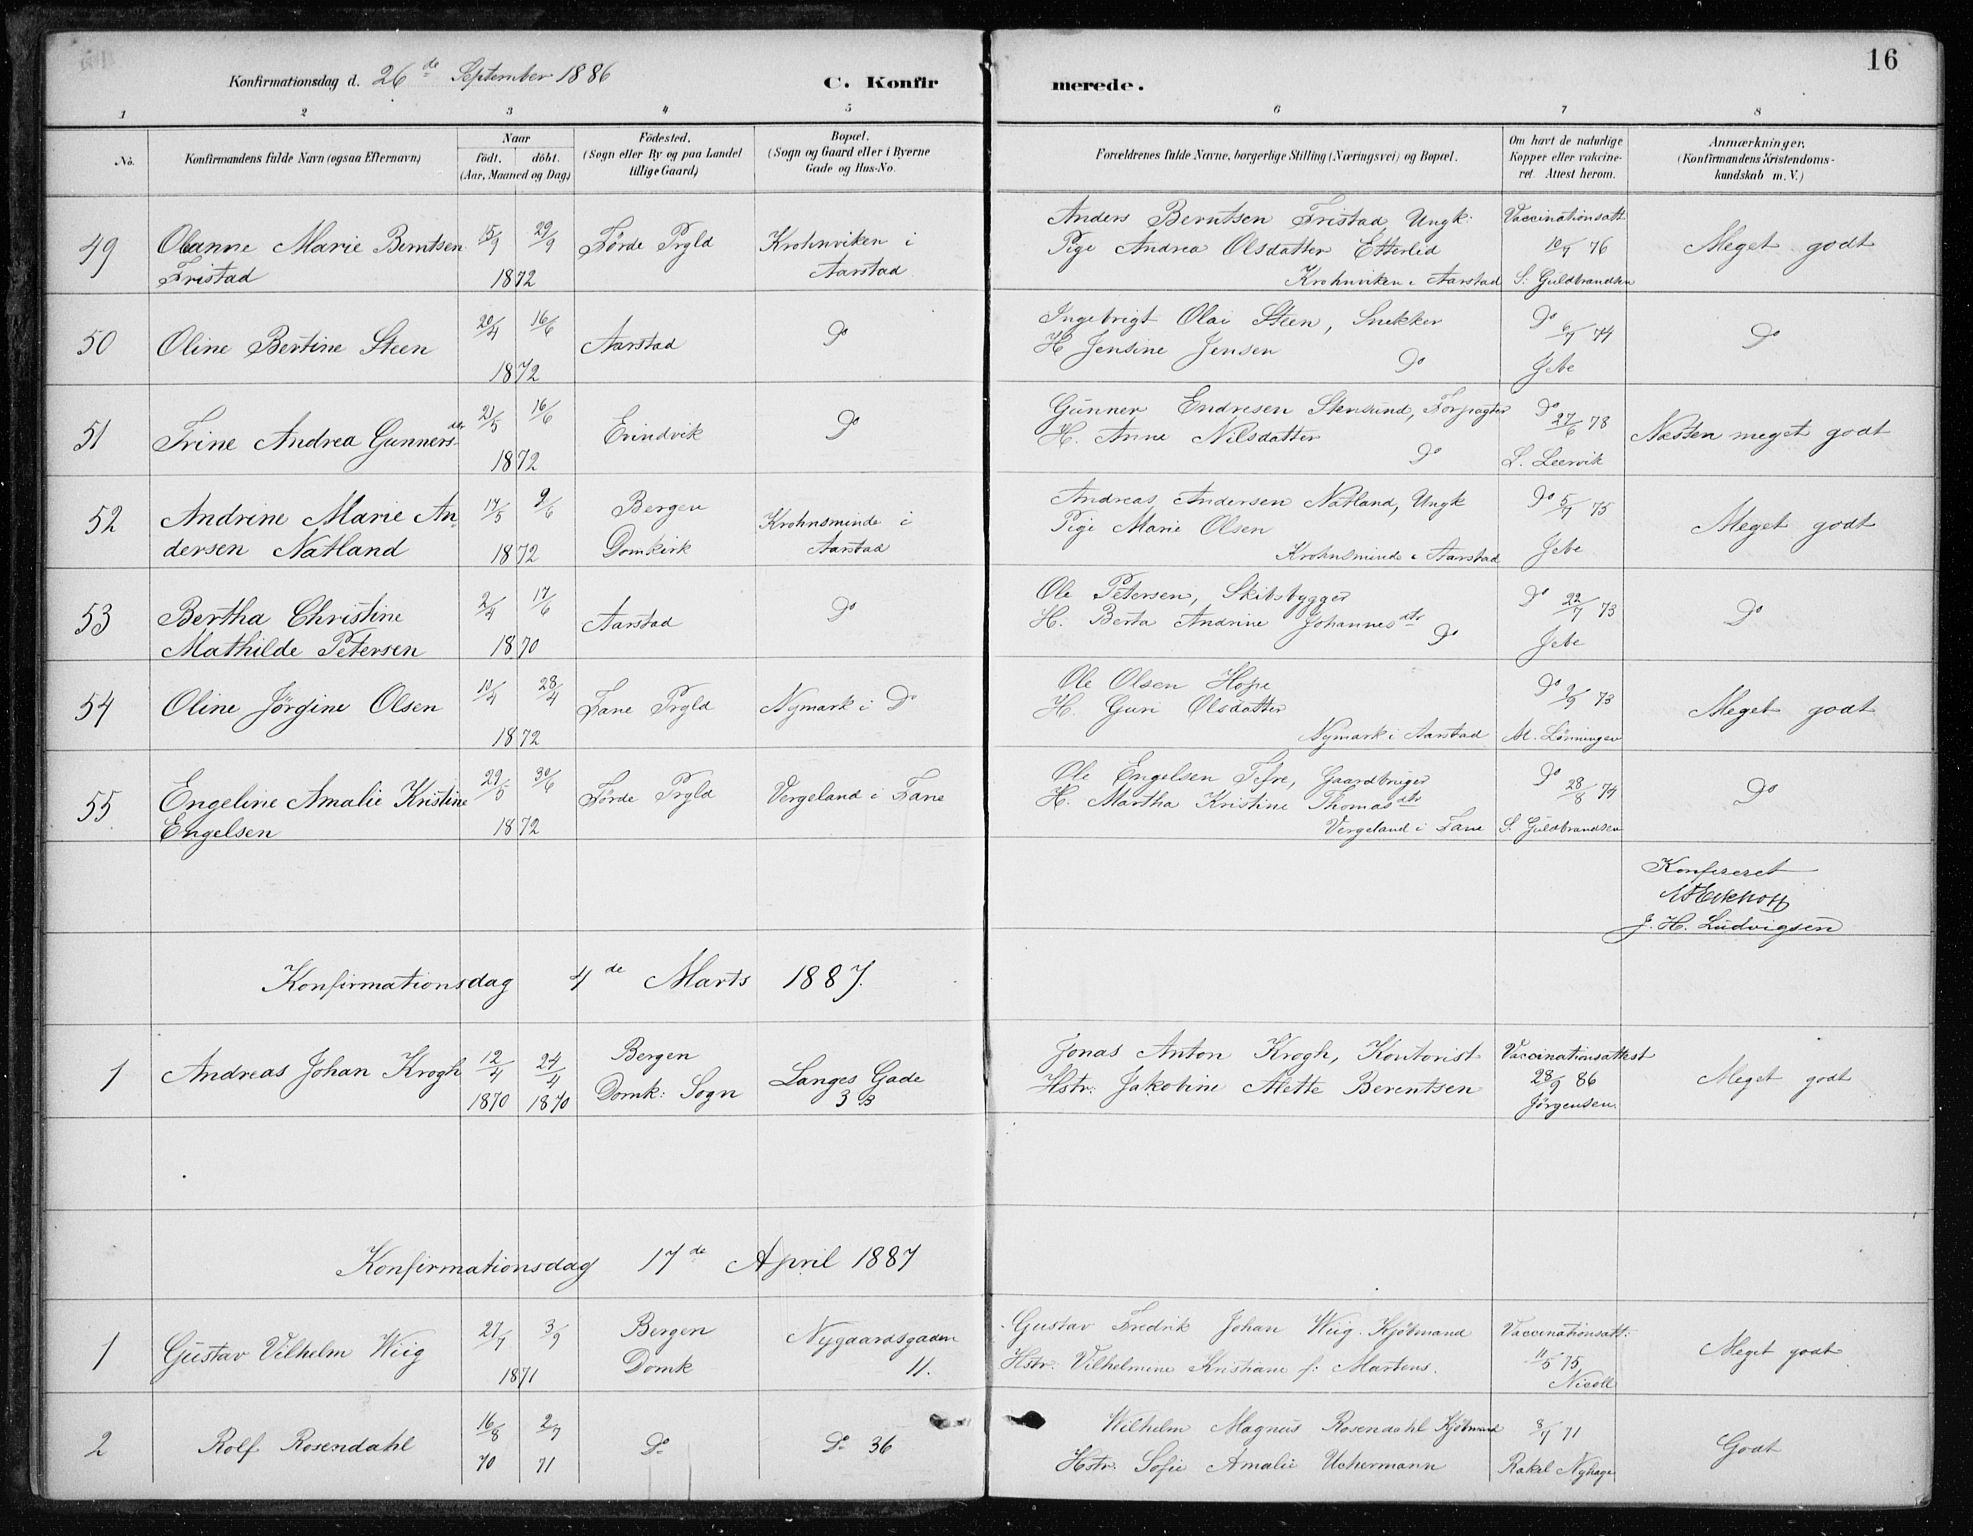 16
Konfirmationsdag d. 26de September 1886
C. Konfir merede.
1 2 3 4 5 6 7 8
No.
Konfirmandens fulde Navn (ogsaa Efternavn)
Naar
födt. döbt.
(Aar, Maaned og Dag)
Födested.
(Sogn eller By og paa Landet
tillige Gaard)
Bopæl.
(Sogn og Gaard eller i Byerne
Gade og Hus-No.
Forældrenes fulde Navne, borgerlige Stilling (Næringsvei) og Bopæl.
Om havt de naturlige
Kopper eller vakcine-
ret. Attest herom.
Anmærkninger,
(Konfirmandens Kristendoms-
kundskab m. V.)
49 Olianne Marie Berntsen 15/9 29/9 Förde Prgld Krohnviken i
Fristad 1872 Aarstad
Anders Berntsen Fristad, Ungk: Vaccinationsatt
Pige Andrea Olsdatter Etterlid 10/9 76 Meget godt
Krohnviken i Aarstad S. Guldbrandsen
50 Oline Bertine Steen 20/4 16/6 Aarstad Do
1872
Ingebrigt Olai Steen, Snekker Do 6/7 74
H. Jensine Jensen Do Jebe Do
51 Trine Andrea Gunnersdtr 21/5 16/6 Evindvik Do
1872
Gunner Endresen Stensund, Forpagter Do 27/6 78
H. Anne Nilsdatter Do L. Leervik Næsten meget godt
52 Andrine Marie An- 17/5 9/6 Bergen Krohnsminde i
dersen Natland 1872 Domkirk Aarstad
Andreas Andersen Natland, Ungk Do 5/7 75
Pige Marie Olsen Meget godt
Krohnsminde i Aarstad Jebe
53 Bertha Christine 2/4 17/6 Aarstad Do
Mathilde Petersen 1870
Ole Petersen, Skibsbygger Do 22/7 73
H. Berta Andrine Johannesdtr Do Jebe Do
54 Oline Jörgine Olsen 10/4 28/4 Fane Prgld Nymark i Do
1872
Ole Olsen Hope Do 2/9 73
H. Guri Olsdatter Meget godt
Nymark i Aarstad M. Lönningen
55 Engeline Amalie Kristine 29/5 30/6 Förde Prgld Vergeland i Fane
Engelsen 1872
Ole Engelsen Tefre, Gaardbruger Do 28/8 74
H. Martha Kristine Thomasdtr Do
Vergeland i Fane S. Guldbrandsen
Konfereret
J. H. Ludvigsen
Konfirmationsdag 4de Marts 1887.
1 Andreas Johan Krogh 12/4 1870 24/4 1870 Bergen Langes Gade
Domk: Sogn 3 B
Jonas Anton Krogh, Kontorist Vaccinationsattest
Hstr: Jakobine Mette Berentsen 28/9 86 Meget godt
Jörgensen.
Konfirmationsdag 17de April 1887
1 Gustav Vilhelm Wiig 27/7 3/9 Bergen Nygaardsgaden
1871 Domk 11.
Gustav Fredrik Johan Wiig. Kjöbmand Vaccinationsatt:
Hstr: Vilhelmine Kristiane f: Martens. 11/5 75, Meget godt
Nicoll
2 Rolf Rosendahl 16/8 70 2/7 71 Do Do 36
Wilhelm Magnus Rosendahl Kjöbmand 8/7 71
Hstr: Sofie Amalie Uchermann Rakel Nyhage Godt